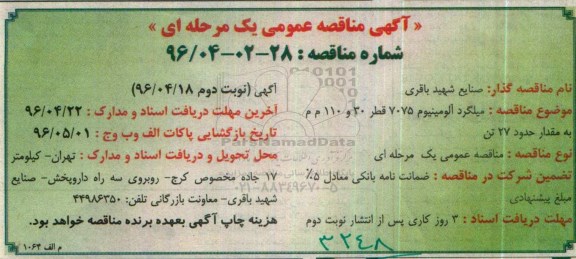 « آگهی مناقصه عمومی یک مرحله ای »
شماره مناقصه : ۲۸-۰۲-۹۶/۰۴
نام مناقصه گذار: صنایع شهید باقری
موضوع مناقصه : میلگرد آلومینیوم ۷۰۷۵ قطر ۳۰ و ۱۱۰ م م
به مقدار حدود ۲۷ تن
نوع مناقصه : مناقصه عمومی یک مرحله ای
تضمین شرکت در مناقصه : ضمانت نامه بانکی معادل ۵٪
مبلغ پیشنهادی
مهلت دریافت اسناد : ۳ روز کاری پس از انتشار نوبت دوم
آگهی (نوبت دوم ۹۶/۰۴/۱۸)
آخرین مهلت دریافت اسناد و مدارک : ۹۶/۰۴/۲۲
تاریخ بازگشایی پاکات الف وب وج : ۹۶/۰۵/۰۱
محل تحویل و دریافت اسناد و مدارک : تهران- کیلومتر
۱۷ جاده مخصوص کرج- روبروی سه راه داروپخش- صنایع
شهید باقری- معاونت بازرگانی تلفن: ۴۴۹۸۶۳۵۰
هزینه چاپ آگهی بعهده برنده مناقصه خواهد بود.
۳۲۴۸
م الف ۱۰۶۴
ParsNamadData
۰۲۱-۸۸۳۴۹۶۷۰-۵